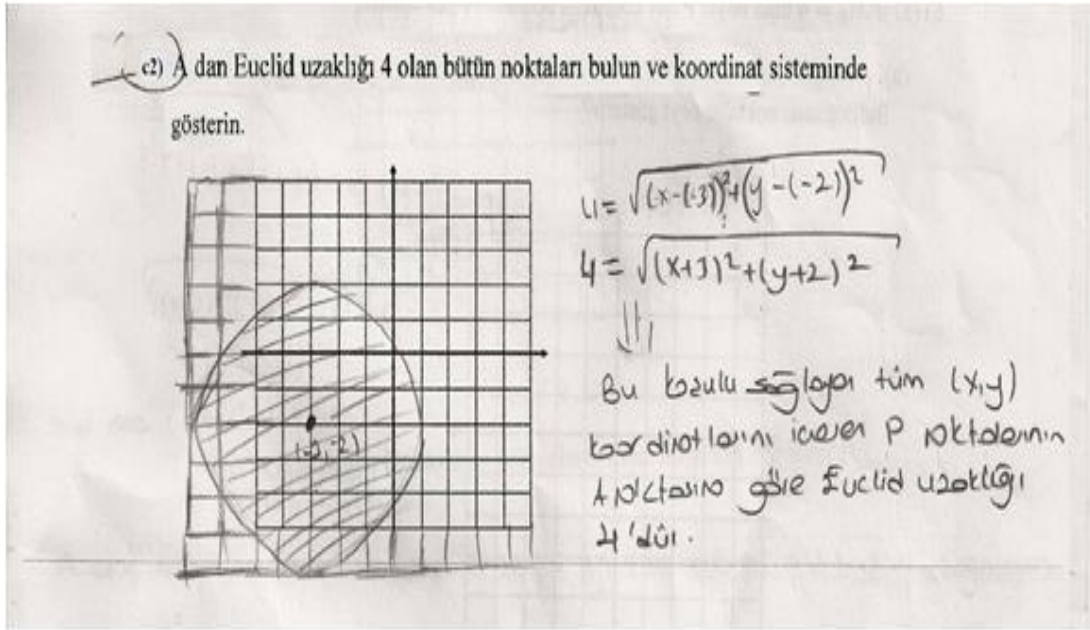 c2) A dan Euclid uzaklığı 4 olan bütün noktaları bulun ve koordinat sisteminde
gösterin.
4 = √(x-(-3))²+(y-(-2))²
4 = √(x+3)²+(y+2)²
(-3,-2)
Bu koşulu sağlayan tüm (x,y)
koordinatlarını içeren P noktalarının
A noktasına göre Euclid uzaklığı
4'dür.